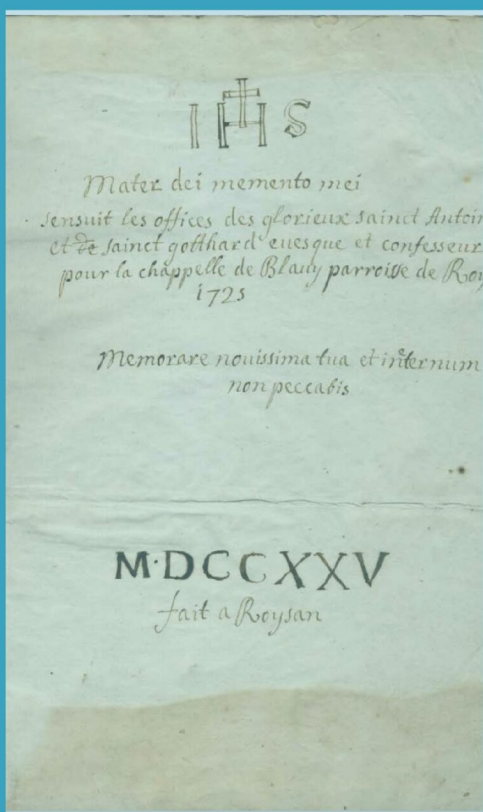 IHS
Mater dei memento mei
sensuit les offices des glorieux sainct Antoin
et de sainct gotthard evesque et confesseur
pour la chappelle de Blavy parroisse de Roy
1725
Memorare novissima tua et in æternum
non peccabis
M·DCCXXV
fait a Roysan